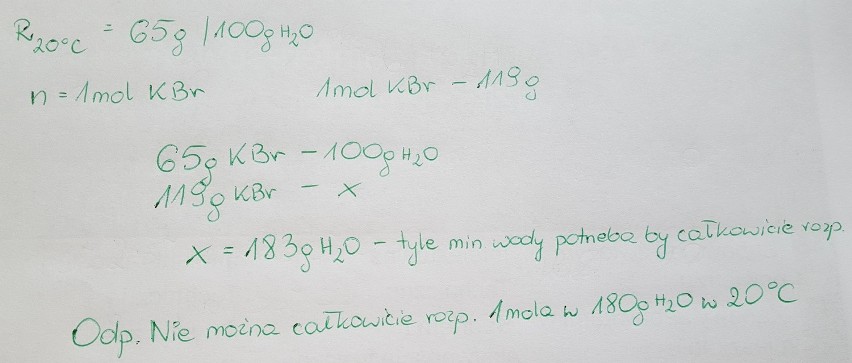 R₂₀°C = 65g /100g H₂O
n = 1mol KBr 1mol KBr – 119g
65g KBr – 100g H₂O
119g KBr – x
x = 183g H₂O – tyle min wody potrzeba by całkowicie rozp.
Odp. Nie można całkowicie rozp. 1mola w 180g H₂O w 20°C